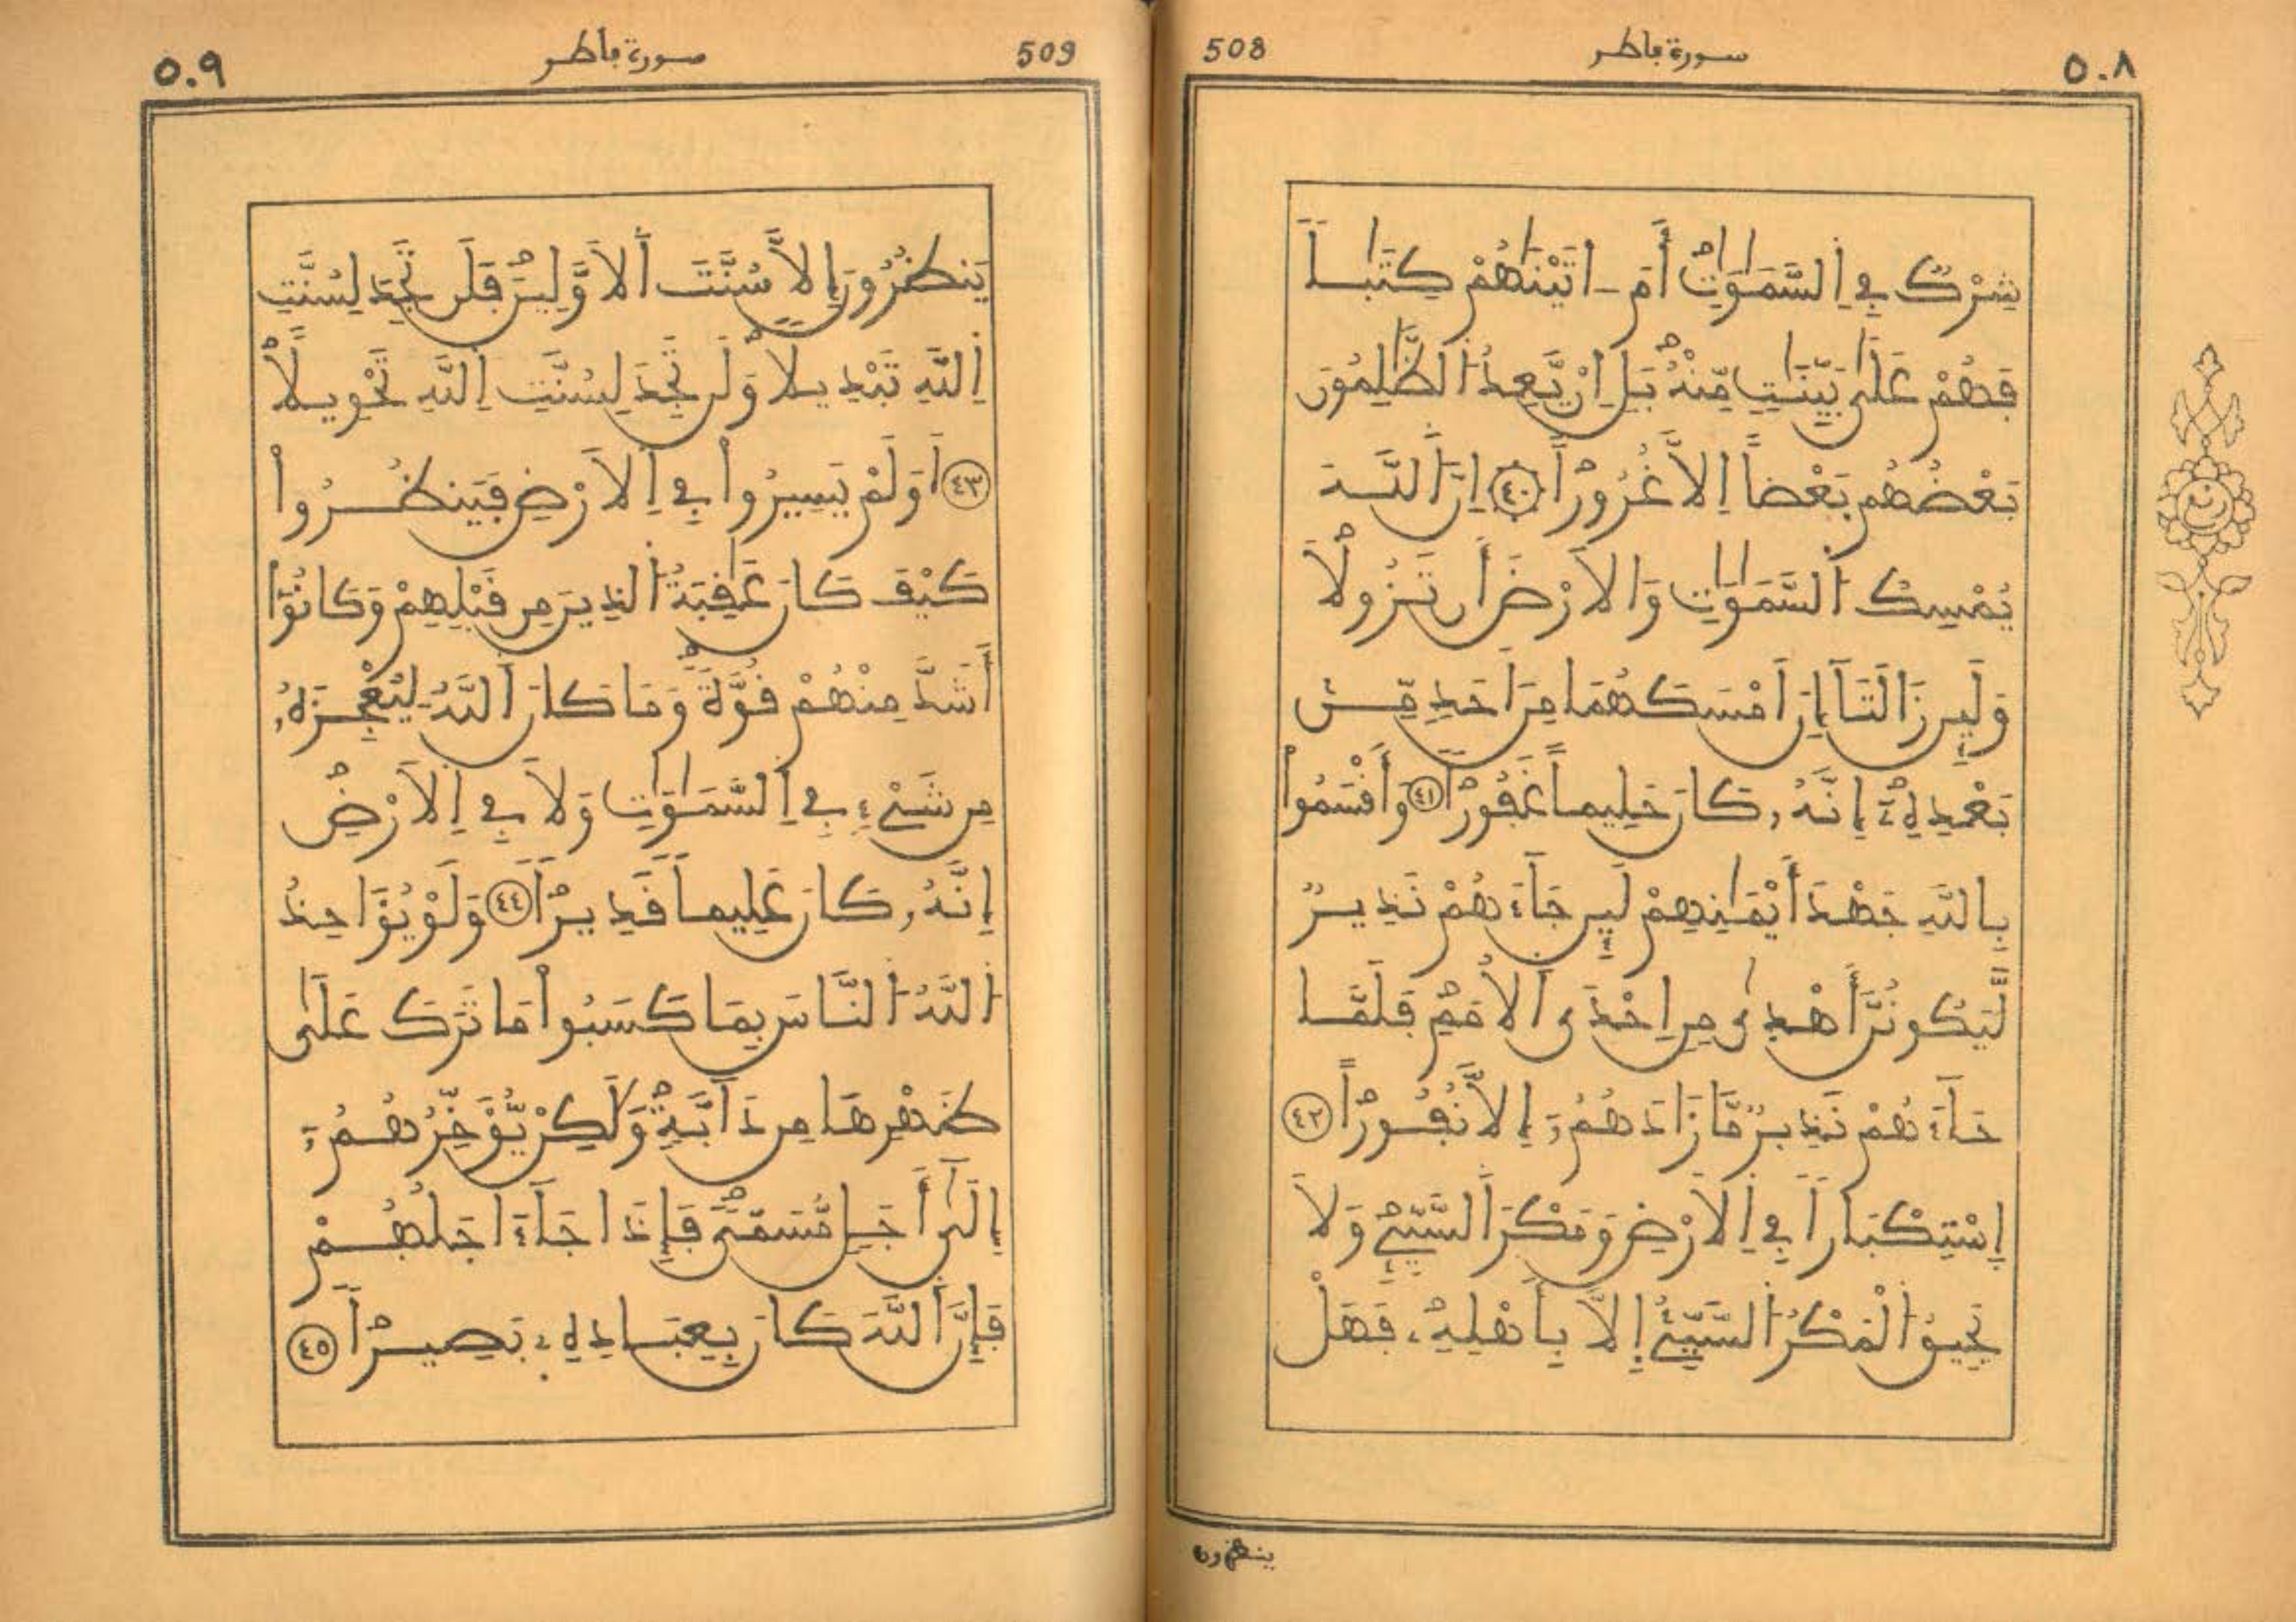 ٥٠٨ سورة ڢاطر 508
شِرْكٌ ڢِے اِ۬لسَّمَٰوَٰتِ أَمَ ـ اتَيْنَٰهُمْ كِتَٰباٗ
ڢَهُمْ عَلَىٰ بَيِّنَٰتٖ مِّنْهُ بَلِ اِنْ يَّعِدُ اُ۬لظَّٰلِمُونَ
بَعْضُهُم بَعْضاً اِلَّا غُرُوراً ٤٠ اِنَّ اَ۬للَّهَ
يُمْسِكُ اُ۬لسَّمَٰوَٰتِ وَالَارْضَ أَن تَزُولَا
وَلَئِن زَالَتَآ إِنَ اَمْسَكَهُمَا مِنَ اَحَدٖ مِّنۢ
بَعْدِهِۦٓ إِنَّهُۥ كَانَ حَلِيماً غَڢُوراٗ ٤١ وَأَڧْسَمُواْ
بِاللَّهِ جَهْدَ أَيْمَٰنِهِمْ لَئِن جَآءَهُمْ نَذِيرٌ
لَّيَكُونُنَّ أَهْدٜىٰ مِنِ اِحْدَى اَ۬لُامَمِ ڢَلَمَّا
جَآءَهُمْ نَذِيرٌ مَّا زَادَهُمُۥٓ إِلَّا نُڢُوراً ٤٢
اِ۪سْتِكْبَاراٗ ڢِے اِ۬لَارْضِ وَمَكْرَ اَ۬لسَّيِّےِٕ وَلَا
يَحِيڧُ اُ۬لْمَكْرُ اُ۬لسَّيِّئُ إِلَّا بِأَهْلِهِۦ ڢَهَلْ
ينظرون
509 سورة ڢاطر ٥٠٩
يَنظُرُونَ إِلَّا سُنَّتَ اَ۬لَاوَّلِينَ ڢَلَن تَجِدَ لِسُنَّتِ
اِ۬للَّهِ تَبْدِيلاٗ وَلَن تَجِدَ لِسُنَّتِ اِ۬للَّهِ تَحْوِيلاً
٤٣ اَوَلَمْ يَسِيرُواْ ڢِے اِ۬لَارْضِ ڢَيَنظُرُواْ
كَيْڢَ كَانَ عَٰڧِبَةُ اُ۬لذِينَ مِن ڧَبْلِهِمْ وَكَانُوٓاْ
أَشَدَّ مِنْهُمْ ڧُوَّةٗ وَمَا كَانَ اَ۬للَّهُ لِيُعْجِزَهُۥ
مِن شَےْءٖ ڢِے اِ۬لسَّمَٰوَٰتِ وَلَا ڢِے اِ۬لَارْضِ
إِنَّهُۥ كَانَ عَلِيماٗ ڧَدِيراٗ ٤٤ وَلَوْ يُوَ۬اخِذُ
اُ۬للَّهُ اُ۬لنَّاسَ بِمَا كَسَبُواْ مَا تَرَكَ عَلَىٰ
ظَهْرِهَا مِن دَآبَّةٖ وَلَٰكِنْ يُّوَ۬خِّرُهُمُۥٓ
إِلَىٰٓ أَجَلٖ مُّسَمّىٗ ڢَإِذَا جَآءَ اجَلُهُمْ
ڢَإِنَّ اَ۬للَّهَ كَانَ بِعِبَادِهِۦ بَصِيراً ٤٥